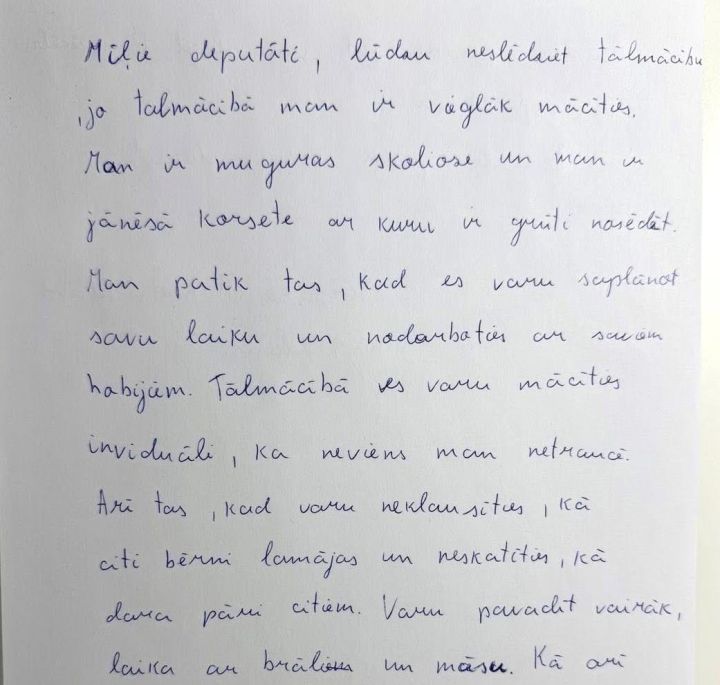 Mīļie deputāti, lūdzu neslēdziet tālmācību
,jo talmācībā man ir vieglāk mācīties.
Man ir muguras skolioze un man ir
jānēsā korsete ar kuru ir grūti nosēdēt.
Man patīk tas, kad es varu saplānot
savu laiku un nodarboties ar saviem
hobijiem. Tālmācībā es varu mācīties
inviduāli, ka neviens man netraucē.
Arī tas, kad varu neklausīties, kā
citi bērni lamājas un neskatīties, kā
dara pāri citiem. Varu pavadīt vairāk,
laika ar brāļiem un māsu. Kā arī